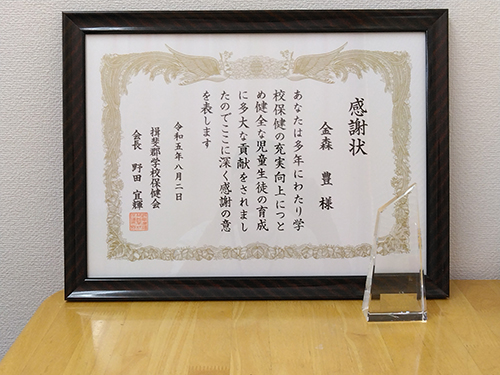 感謝状
金森 豊 様
あなたは多年にわたり学
校保健の充実向上につと
め健全な児童生徒の育成
に多大な貢献をされまし
たのでここに深く感謝の意
を表します
令和五年八月二日
揖斐郡学校保健会
会長 野田 宜輝